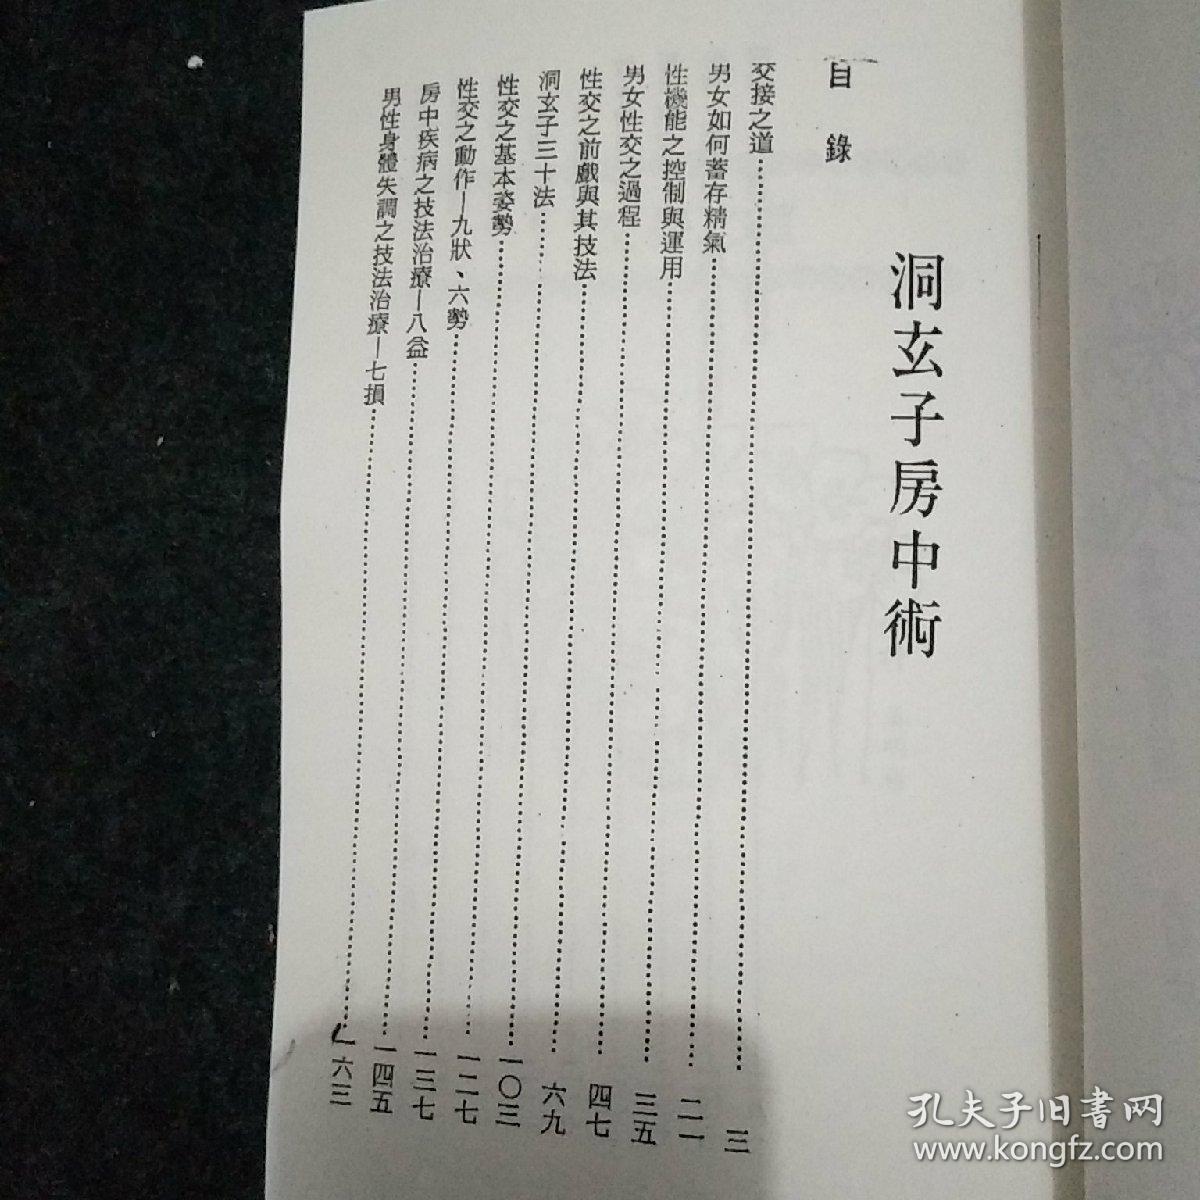 洞玄子房中術
目錄
交接之道…………三
男女如何蓄存精氣…………二一
性機能之控制與運用…………三五
男女性交之過程…………四七
性交之前戲與其技法…………六九
洞玄子三十法…………一〇三
性交之基本姿勢…………一二七
性交之動作—九狀、六勢…………一三七
房中疾病之技法治療—八益…………一四五
男性身體失調之技法治療—七損…………一六三
孔夫子旧書网
www.kongfz.com